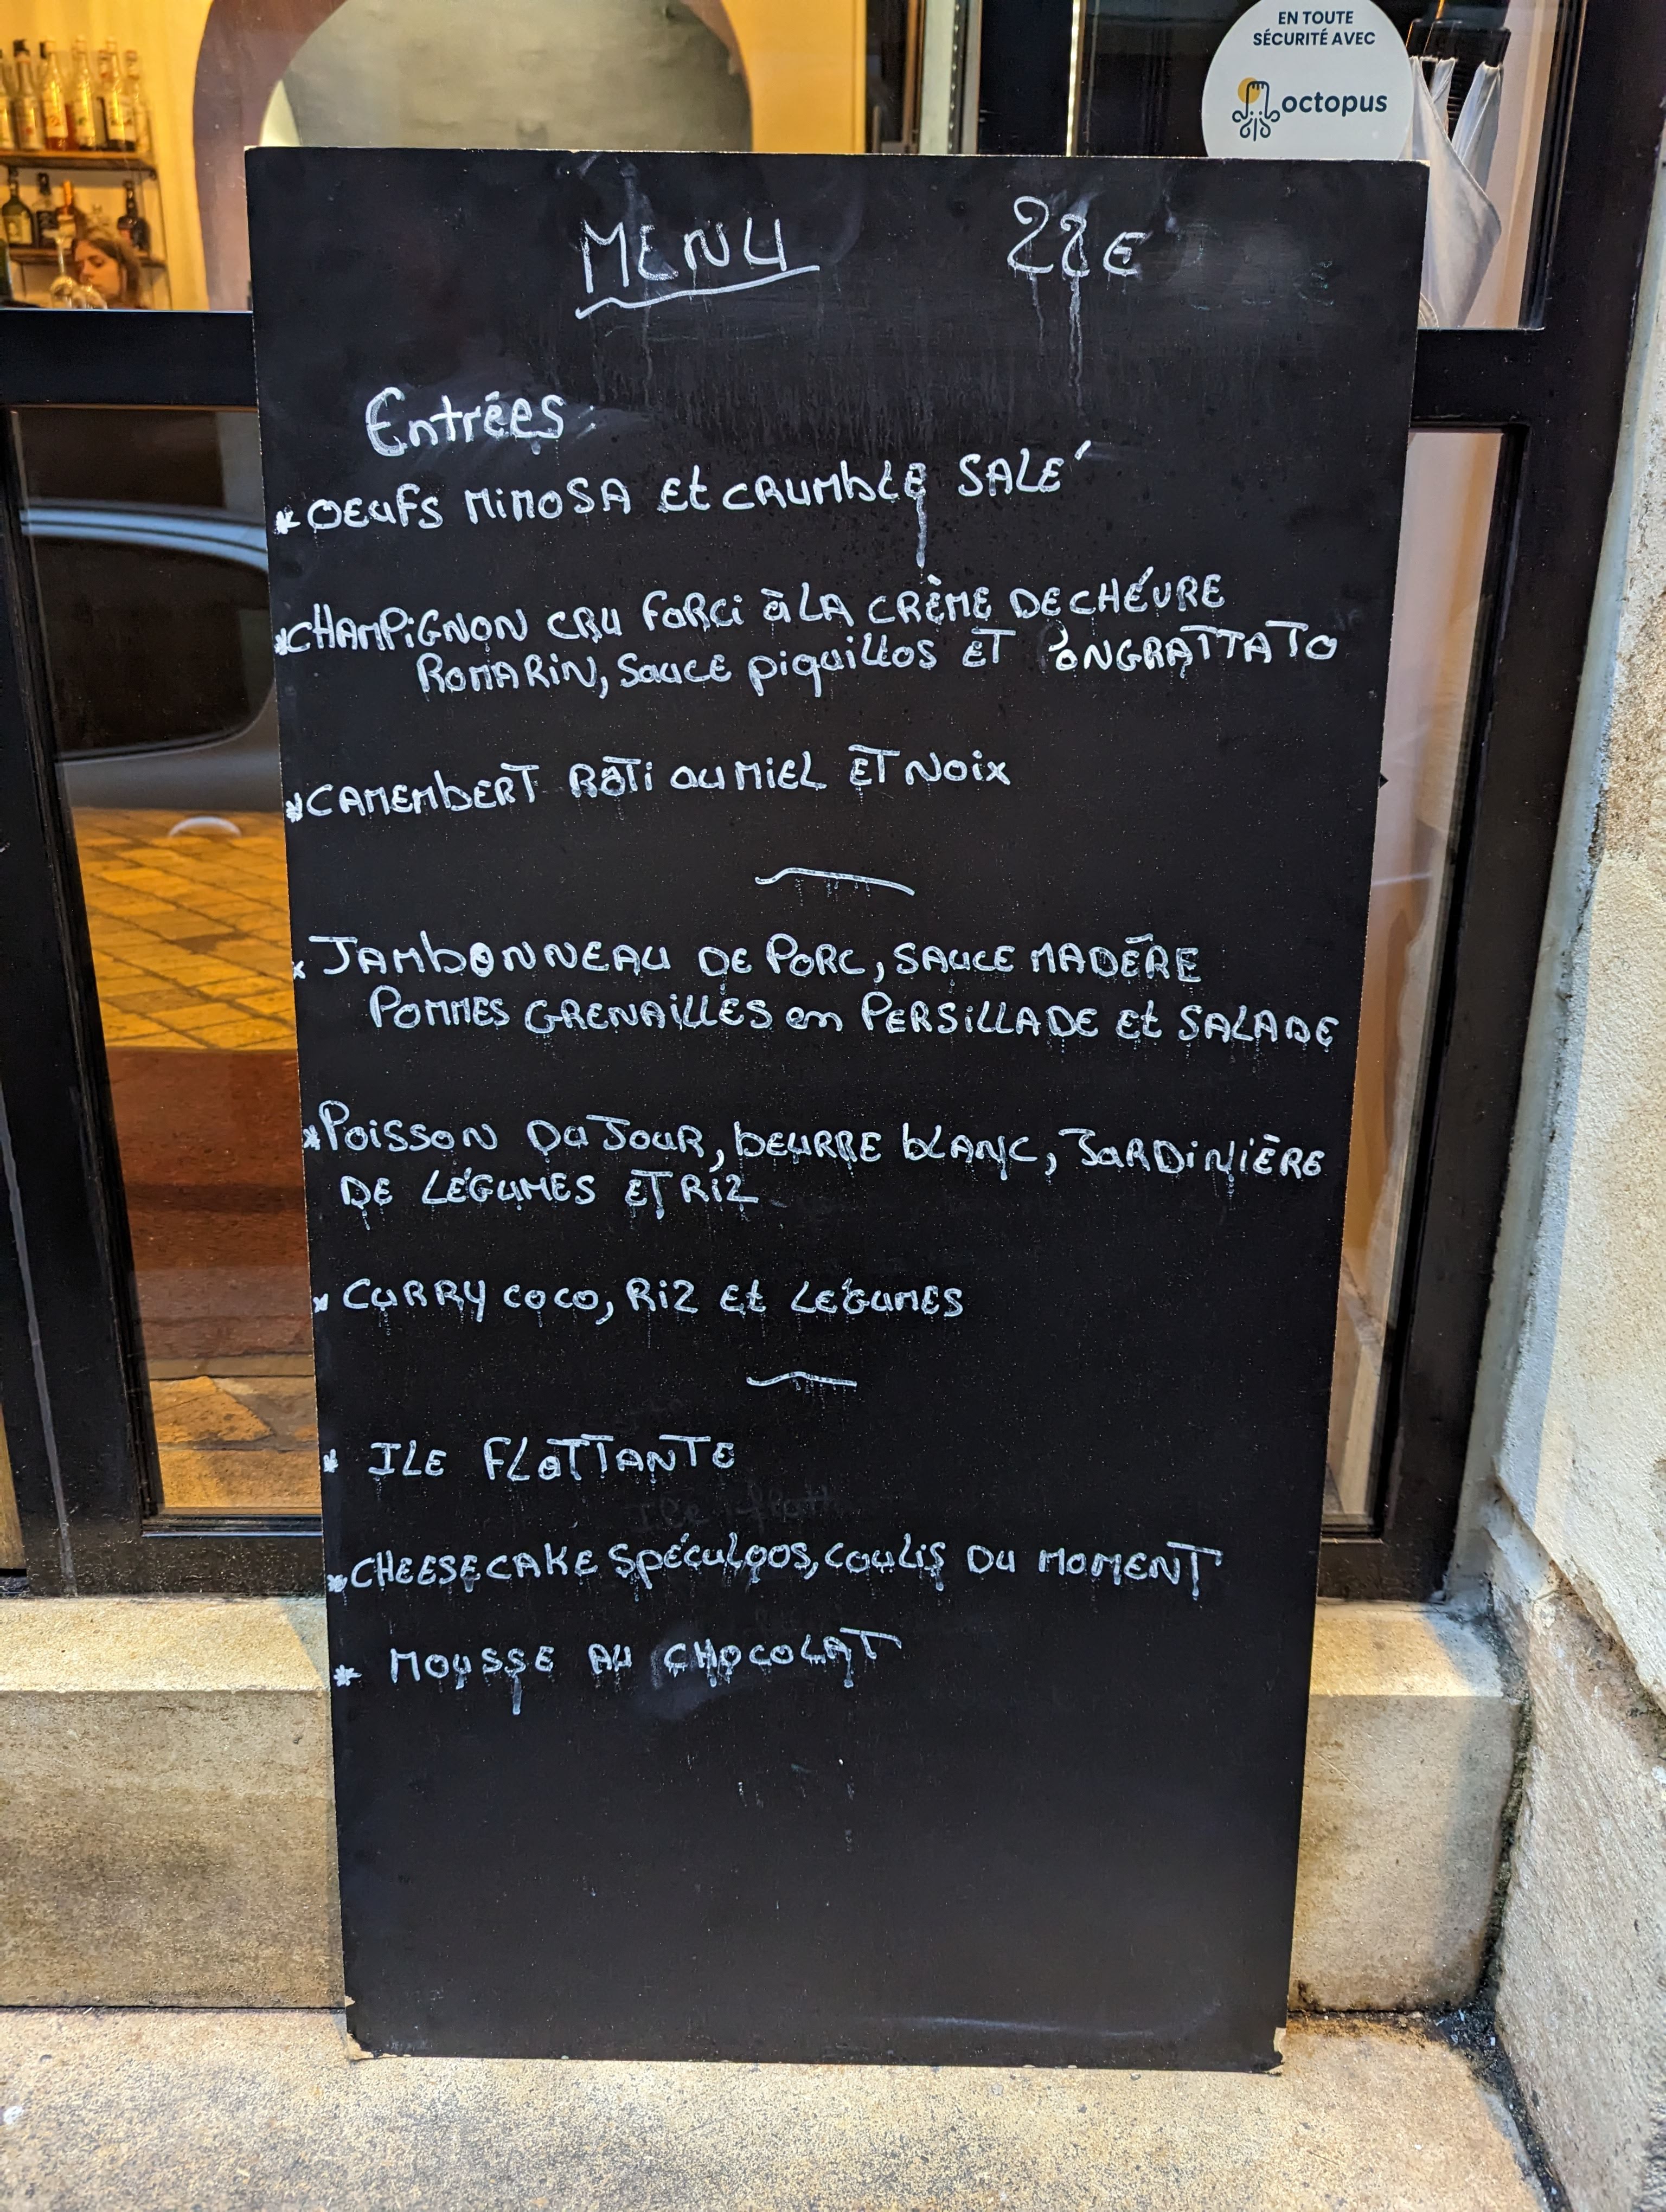 EN TOUTE
SÉCURITÉ AVEC
octopus
MENU 22€
Entrées:
*OEUFS MIMOSA Et CRUMbLE SALÉ
*CHAMPIGNON CRU FARCI à LA CRÈME DE CHÉVRE
ROMARIN, SAUCE piquillos ET PANGRATTATO
*CAMEMbERT RÔTI AU MIEL ET NOIX
* JAMbONNEAU DE PORC, SAUCE MADÈRE
POMMES GRENAILLES en PERSILLADE Et SALADE
*POISSON DU JOUR, bEURRE bLANC, JARDINIÈRE
DE LÉGUMES ET RIZ
* CURRY COCO, RIZ Et LÉGUMES
* ILE FLOTTANTE
*CHEESECAKE SPÉCULOOS, COULIS DU MOMENT
* MOUSSE AU CHOCOLAT